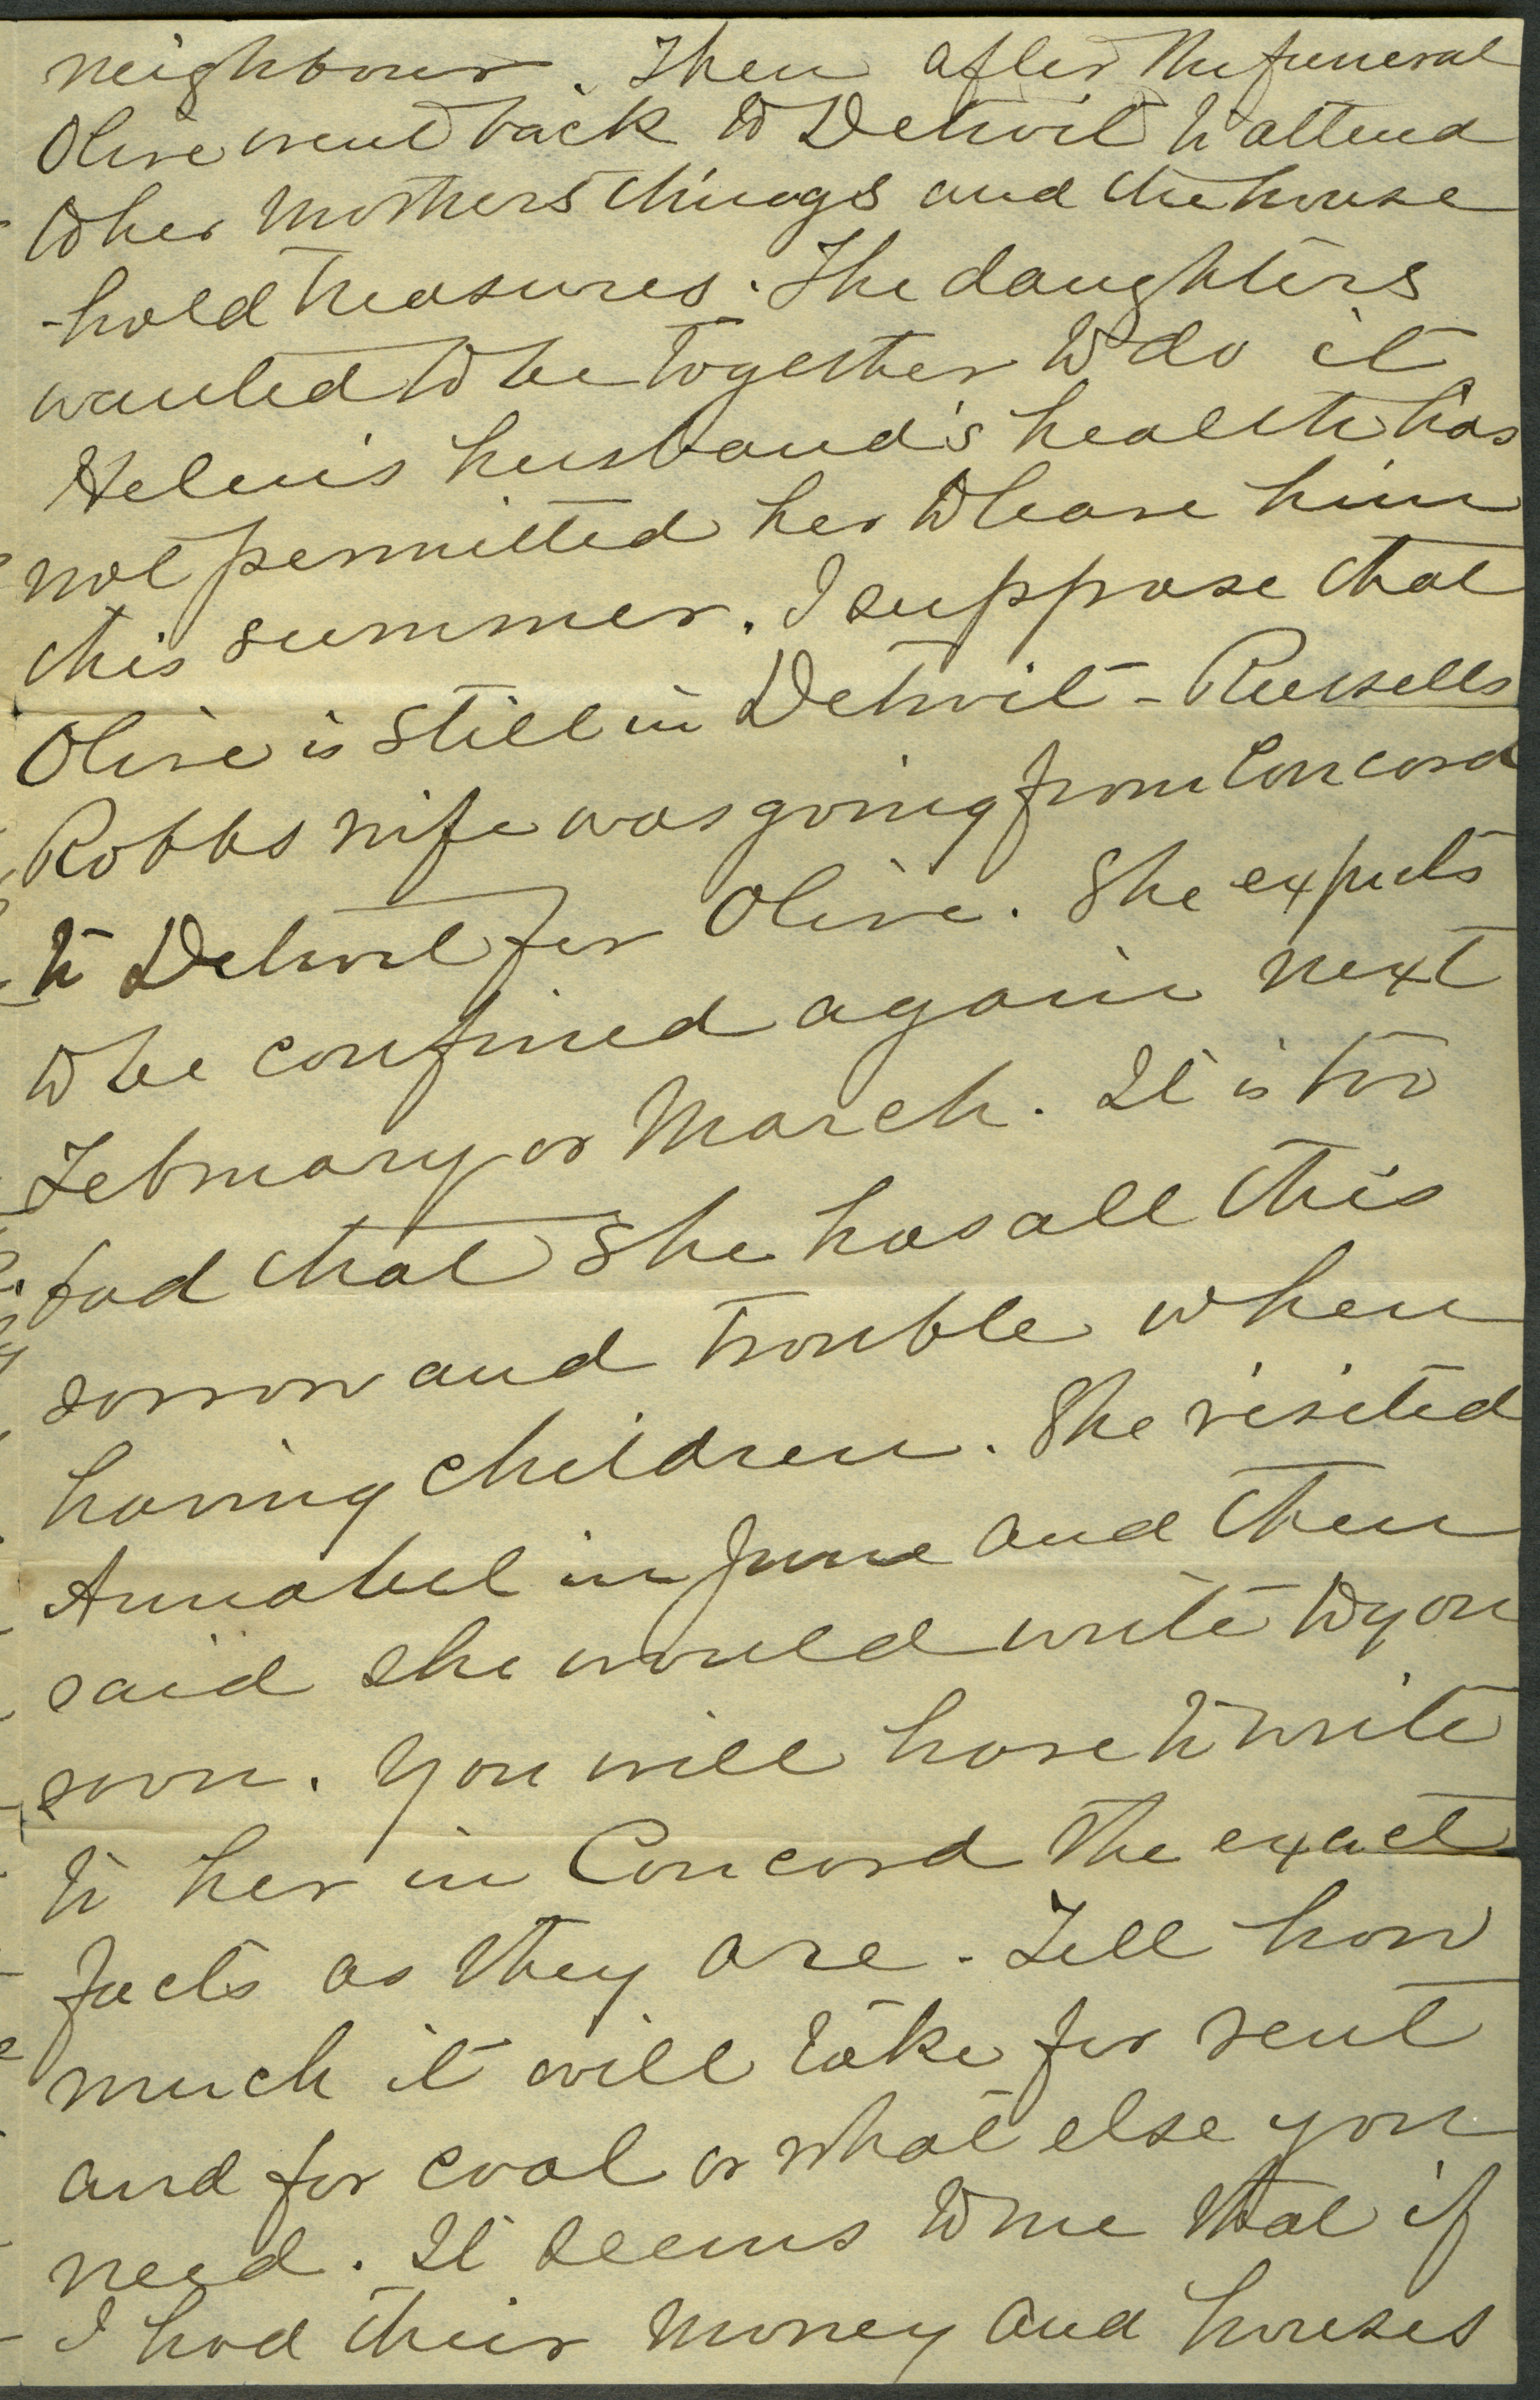 neighbour. Then after the funeral
Olive went back to Detroit to attend
to her Mothers things and the house
-hold treasures. The daughters
wanted to be together to do it
Helen's husband's health has
not permitted her to leave him
this summer. I suppose that
Olive is still in Detroit - Russells
Robbs wife was going from Concord
to Detroit for Olive. She expects
to be confined again next
February or March. It is too
bad that she has all this
sorrow and trouble when
having children. She visited
Annabel in June and then
said she would write to you
soon. You will have to write
to her in Concord the exact
facts as they are. Tell how
much it will take for rent
and for coal or what else you
need. It seems to me that if
I had their money and houses